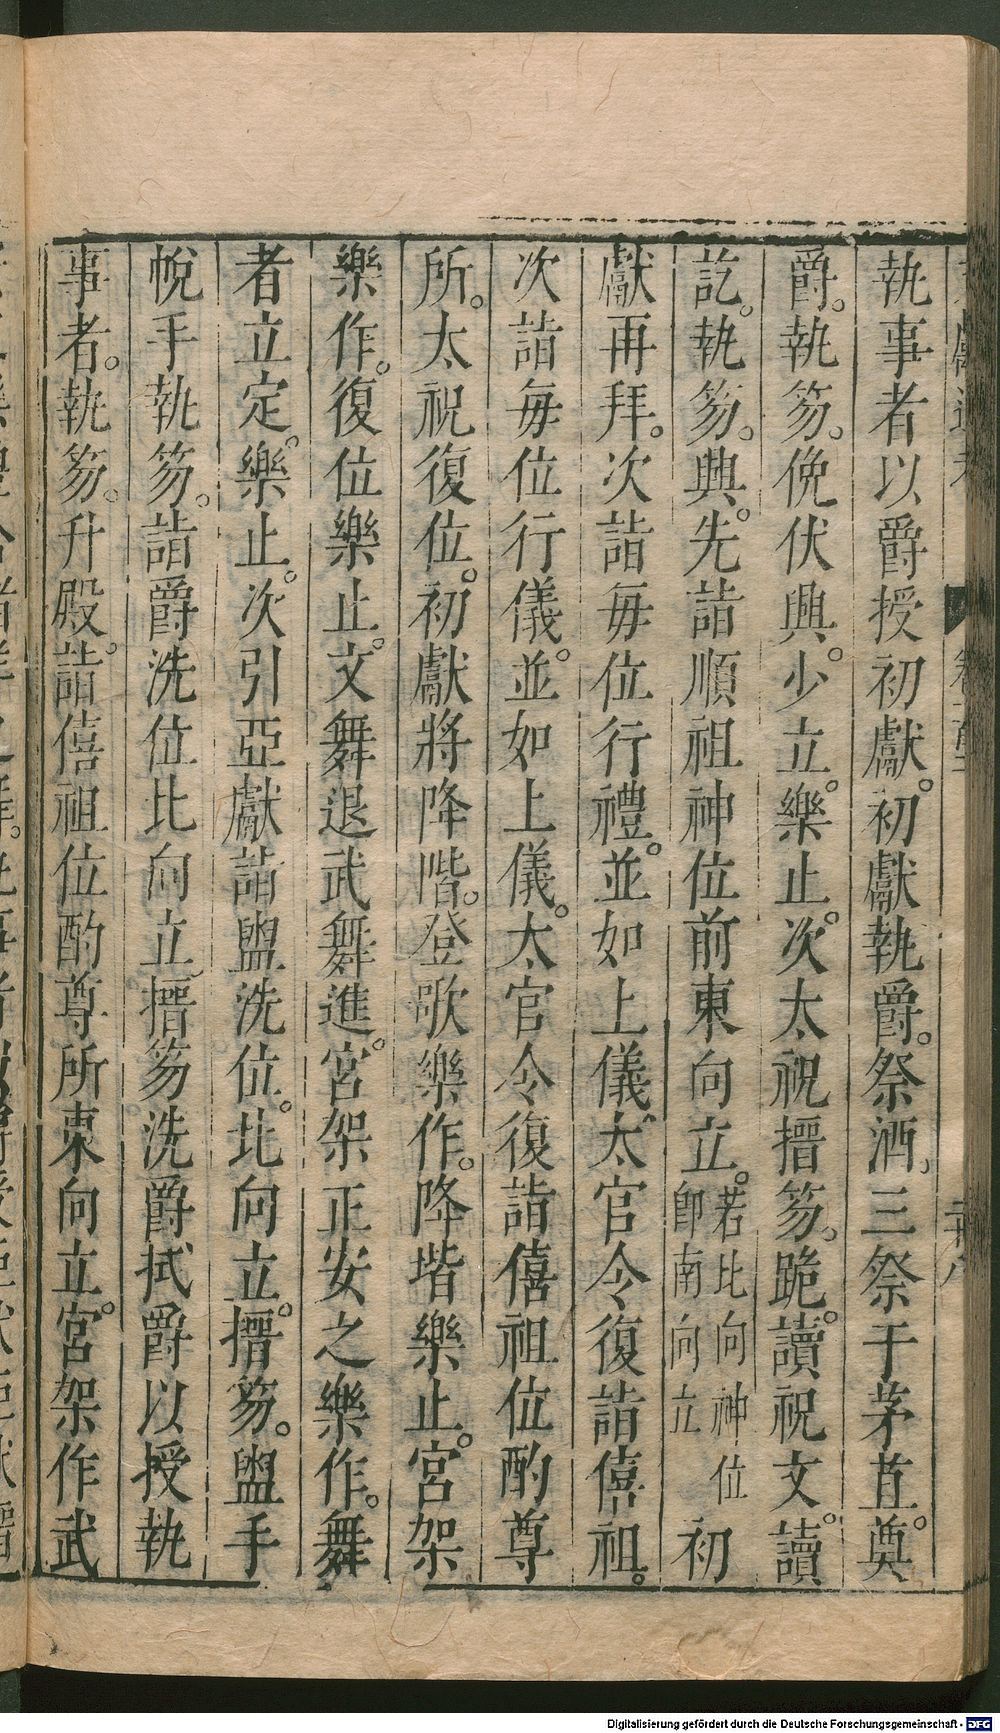 執事者以爵授初獻。初獻執爵。祭酒、三祭于茅苴。奠
爵。執笏。俛伏興。少立。樂止。次太祝搢笏。跪。讀祝文。讀
訖。執笏。興。先詣順祖神位前東向立。若比向神位即南向立初
獻再拜。次詣每位行禮。並如上儀太官令復詣僖祖。
次詣每位行儀。並如上儀。太官令復詣僖祖位酌尊
所。太祝復位。初獻將降階。登歌樂作。降堦樂止。宮架
樂作。復位樂止。文舞退武舞進。宮架正安之樂作。舞
者立定。樂止。次引亞獻詣盥洗位。北向立。搢笏。盥手
帨手執笏。詣爵洗位比向立搢笏洗爵拭爵以授執
事者。執笏。升殿。詣僖祖位酌尊所東向立。宮架作武
Digitalisierung gefördert durch die Deutsche Forschungsgemeinschaft - DFG